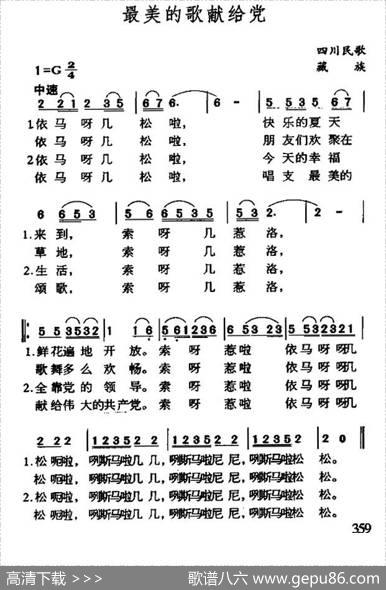 最美的歌献给党
四川民歌
1=G 2/4
藏 族
中速
2 2 2 1 2 3 5 | 6 7 6. | 6 - | 5 5 3 5 6 7 |
1.依 马 呀 几 松 啦， 快 乐 的 夏 天
依 马 呀 几 松 啦， 朋 友 们 欢 聚 在
2.依 马 呀 几 松 啦， 今 天 的 幸 福
依 马 呀 几 松 啦， 唱 支 最 美 的
6 6 5 3 | 5 6 5 3 5 3 5 | 5 3 2. | 2 - |
1.来 到， 索 呀 几 惹 洛，
草 地， 索 呀 几 惹 洛，
2.生 活， 索 呀 几 惹 洛，
颂 歌， 索 呀 几 惹 洛，
5 5 3532 | 1 1 6 | 5 61236 | 6 53 23 | 5 5321321 |
1.鲜花遍 地 开 放。索 呀 惹 啦 依 马 呀 呀几
歌舞多 么 欢 畅。索 呀 惹 啦 依 马 呀 呀几
2.全靠党 的 领 导。索 呀 惹 啦 依 马 呀 呀几
献给伟 大的共产党。索 呀 惹 啦 依 马 呀 呀几
2 2 2 | 1 2 3 5 2 2 | 1 2 3 5 2 2 | 1 2 3 5 1 2 | 2 0
1.松 呃啦，咧斯马啦几 几，咧斯马啦尼 尼，咧斯马啦松 松。
松 呃啦，咧斯马啦几 几，咧斯马啦尼 尼，咧斯马啦松 松。
2.松 呃啦，咧斯马啦几 几，咧斯马啦尼 尼，咧斯马啦松 松。
松 呃啦，咧斯马啦几 几，咧斯马啦尼 尼，咧斯马啦松 松。
359
高清下载 >>> 歌谱八六 www.gepu86.com